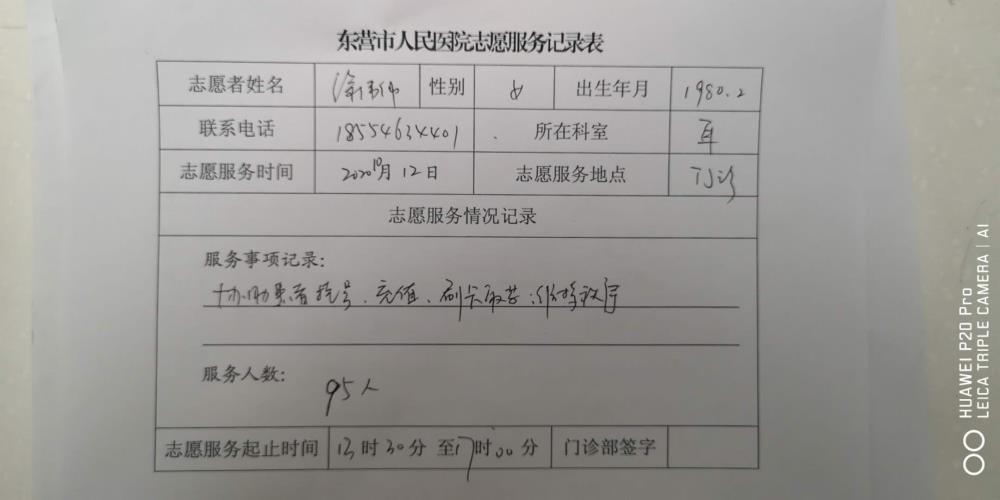 东营市人民医院志愿服务记录表
志愿者姓名 性别 女 出生年月 1980.2
联系电话 18554634401 . 所在科室 耳
志愿服务时间 2020 10月 12日 志愿服务地点 门诊
志愿服务情况记录
服务事项记录:
协助患者挂号、充值、刷卡取药、维持秩序
服务人数:
95人
志愿服务起止时间 13时30分 至17时00分 门诊部签字
HUAWEI P20 Pro
LEICA TRIPLE CAMERA | AI